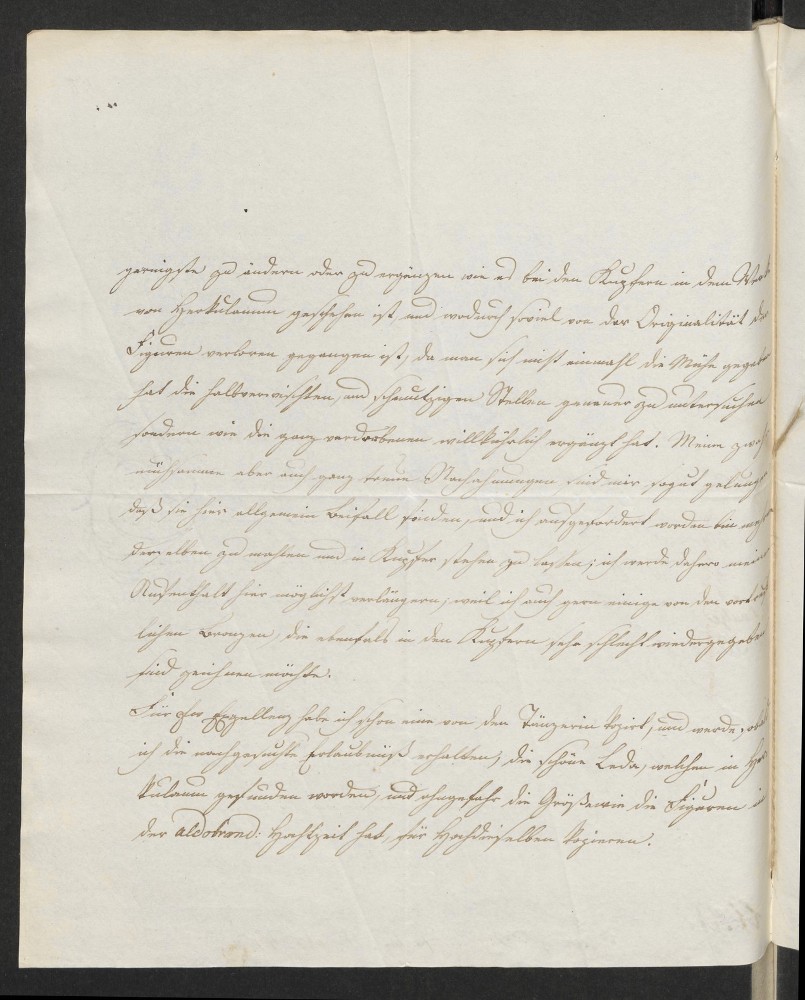 geringste zu ändern oder zu ergänzen wie es bei den Kupfern in dem Werk
von Herkulanum geschehen ist, und wodurch soviel von der Originalität der
Figuren verloren gegangen ist, da man sich nicht einmahl die Mühe gegeben
hat die halbverwischten, und schmutzigen Stellen genauer zu untersuchen
sondern wie die ganz verdorbenen willkührlich ergänzt hat. Meine zwar
mühsamen aber auch ganz treuen Nachahmungen, sind mir so gut gelungen
daß sie hier allgemein Beifall finden, und ich aufgefordert worden bin mehrere
derselben zu mahlen und in Kupfer stechen zu lassen; ich werde dahero meinen
Aufenthalt hier möglichst verlängern, weil ich auch gern einige von den vortreff
lichen Bronzen, die ebenfals in den Kupfern sehr schlecht wiedergegeben
sind zeichnen möchte.
Für Ew Exzellenz habe ich schon eine von den Tänzerin kopirt, und werde, sobald
ich die nachgesuchte Erlaubniß erhalten, die schöne Leda, welchen in Her
kulanum gefunden worden, und ohngefähr die Größe wie die Figuren in
der Aldobrand: Hochtzeit hat, für Hochdieselben kopieren.